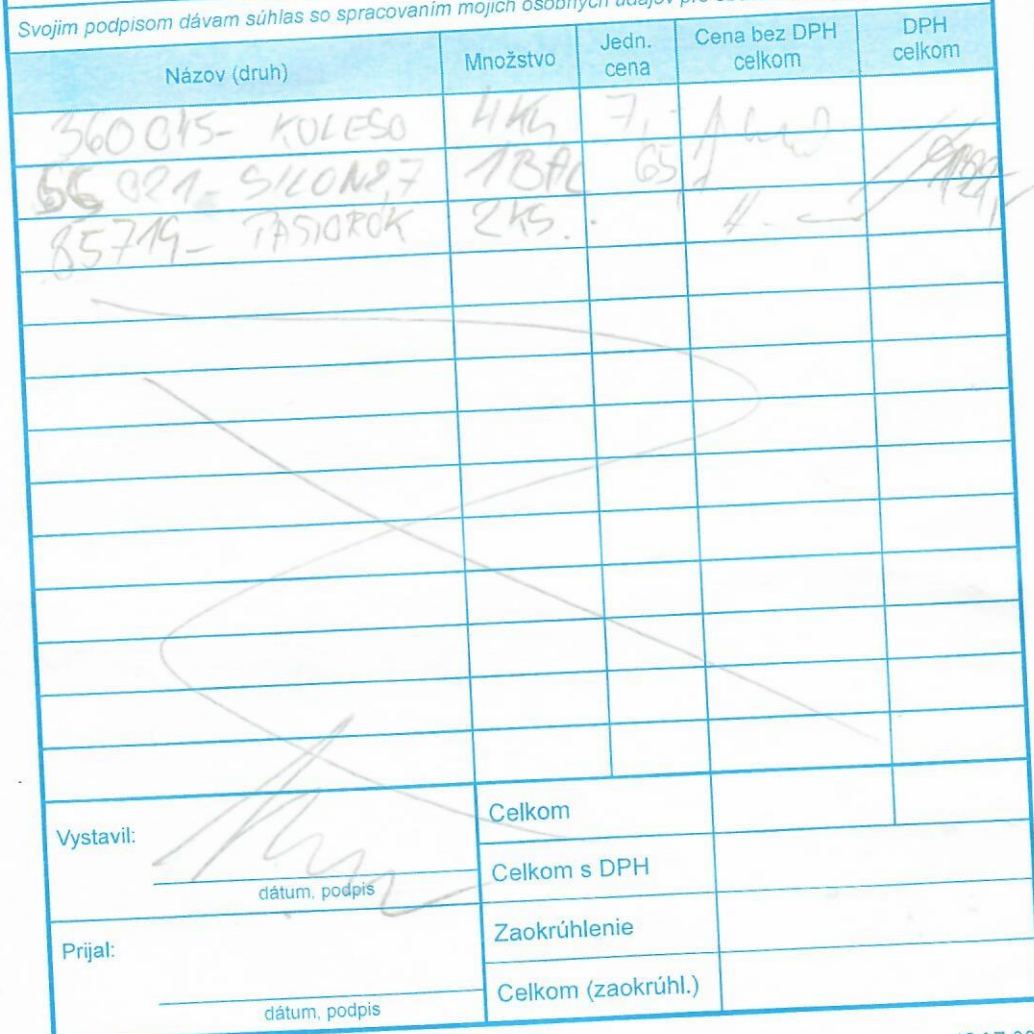 Svojim podpisom dávam súhlas so spracovaním mojich osobných údajov pre
Názov (druh) Množstvo Jedn. cena Cena bez DPH celkom DPH celkom
360 015- KOLESO 4KS 7,-
66 021- SILON 2,7 1BAL 65
85719- 2KS.
Vystavil:
dátum, podpis
Prijal:
dátum, podpis
Celkom
Celkom s DPH
Zaokrúhlenie
Celkom (zaokrúhl.)